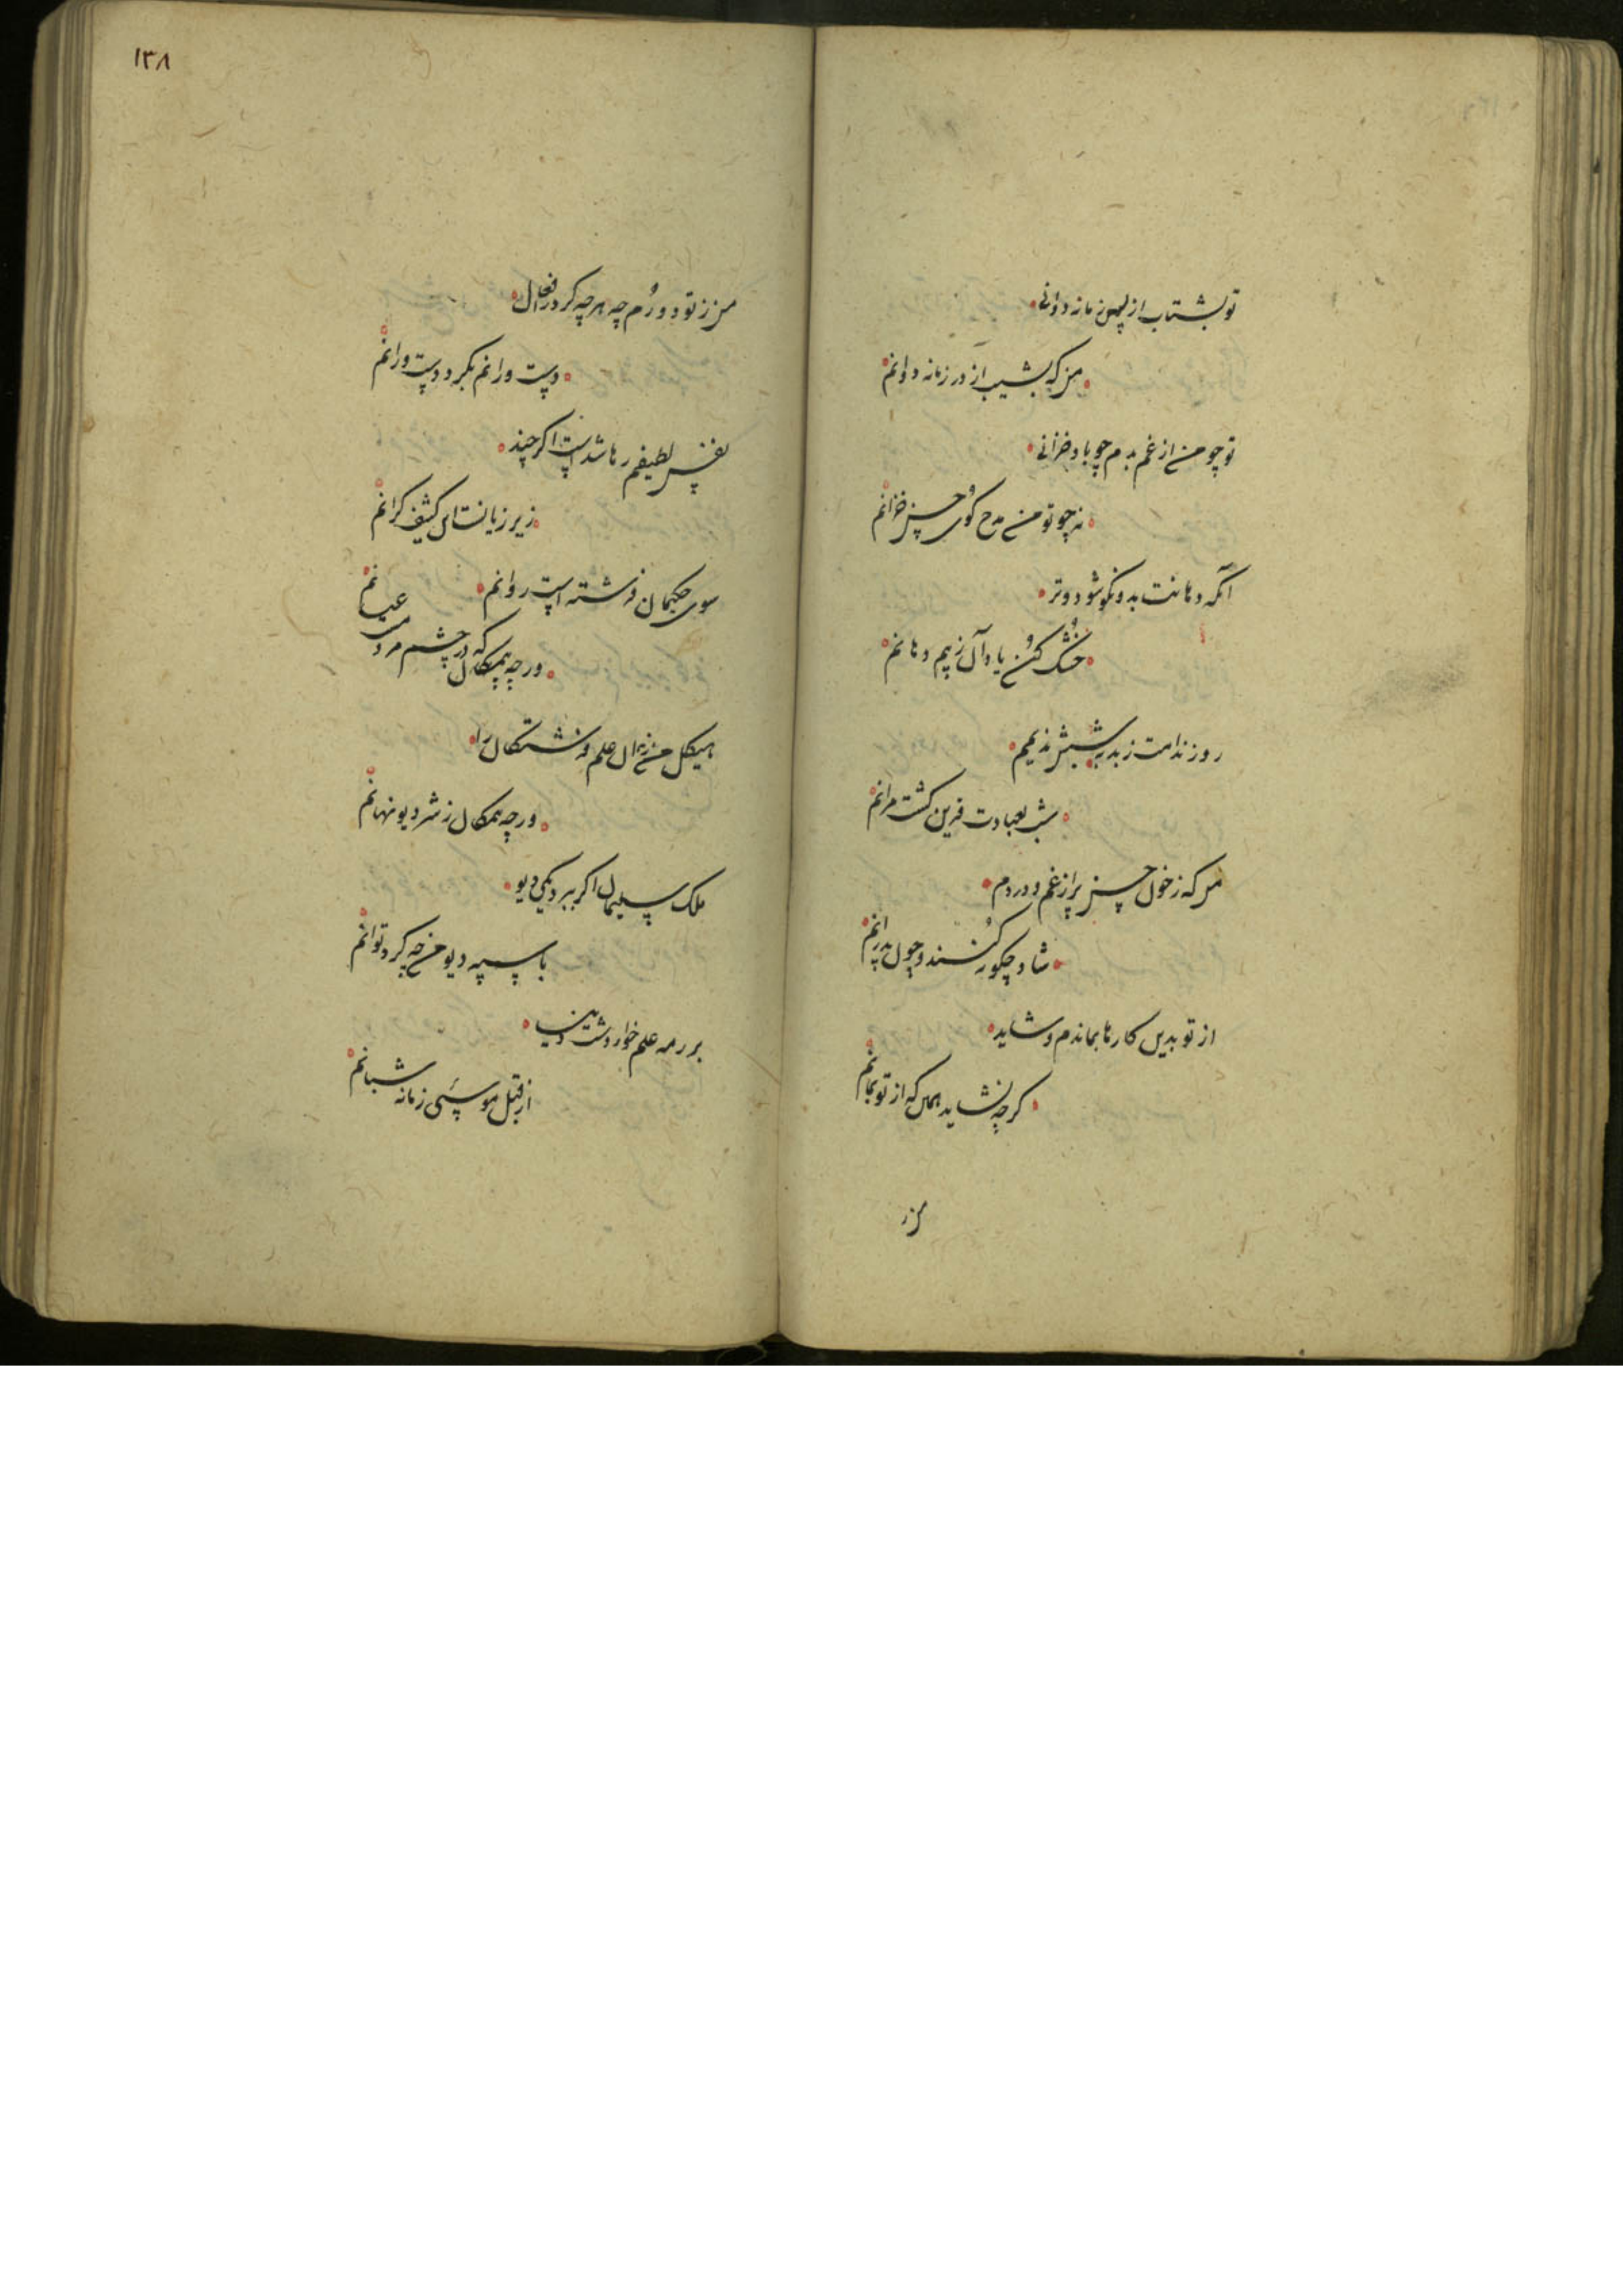 تو بشتاب از پس زمانه دوانی
من که بشیب از در زمانه دوانم
تو چو من از غم بدم چو باد خزانی
نه چو تو من مدح گوی حسن خزانم
آنکه دهانت بدو نکو شود و تر
خشک کنن یاد آن ز بیم دهانم
روز ندامت ز بد بسش ندیمم
شب بعبادت قرین کشت مرانم
من که ز خون حسین پر از غم و دردم
شاد چکونه کنند خون رزانم
از تو بدین کارها بماندم و شاید
کرچه نشاید همی که از تو بمانم
من ز
۱۳۸
من ز تو دورم چه هرچه کرد فعال
دست ورانم بکیرد دست ورانم
نفس لطیفم رها شدست اکر چند
زیر زبانست این کثیف کرانم
سوی حکیمان فرشته است روانم
ورچه همیکل که در چشم مردمی عیانم
هیکل من زان علم فرشتکان را
ورچه همکان ز شر دیو نهانم
ملک سلیمان اکر ببرد یکی دیو
با سپه دیو من چه کرد توانم
بر رمه علم خوار در شب دنیا
از قبل موسی زمانه شبانم